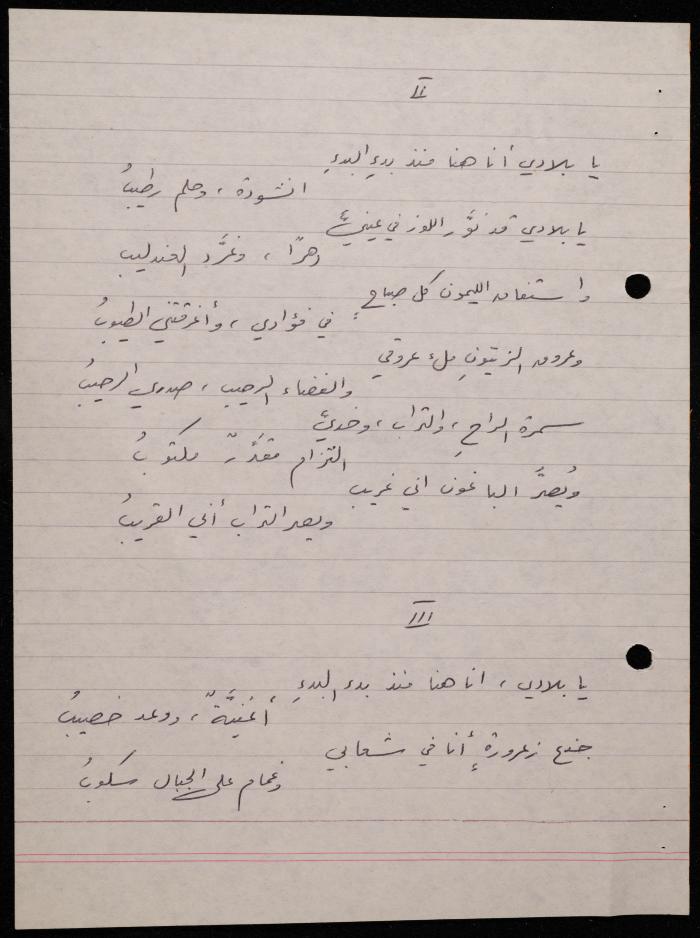 II
يا بلادي أنا هنا منذ بدءِ البدءِ
انشودة، وحلم رطيبُ
يا بلادي قد نوَّر اللوز في عينيَّ
دهرًا، وغرَّد العندليب
واستفاق الليمون كل صباحٍ
في فؤادي، وأغرقتني الطيوبُ
وعروق الزيتونِ ملء عروقي
والفضاء الرحيب، صدري الرحيبُ
سمرة الراحِ، والتراب، وخديَّ
التزام مقدَّرٌ مكتوبُ
ويُصرَّ الباغون اني غريب
ويصر التراب أني القريبُ
III
يا بلادي، انا هنا منذ بدء البدءِ
أغنيَّةٌ، ووعد خصيبُ
جذع زعرورةٍ أنا في شعابي
وغمام على الجبال سكوبُ